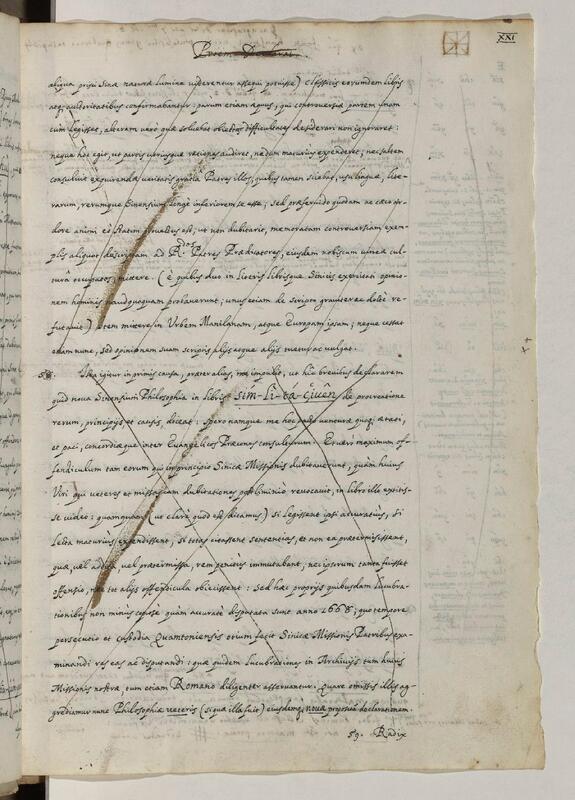 XXI
aliqua prisci Sinae naturae lumine viderentur assequi potuisse) Classicis eorundem libris
atque auctoritatibus confirmabantur: parum etiam aequus, qui controversiae partem unam
cum legisset, alteram vero quae solvebat objectas difficultates desiderari non ignoraret:
neque hoc egit, ut partis utriusque rationes audiret, nedum maturius expenderet; nec saltem
consuluit exquirendae veritatis gratia Patres illos, quibus tamen sciebat, usu linguae, lite-
rarum, rerumque Sinensium longe inferiorem se esse; sed praefervido quodam ac caeco ar-
dore animi eo statim evadendus est; ut non dubitarit, memoratam controversiam exem-
plis aliquot descriptam ad R.dos Patres Praedicatores, ejusdem nobiscum vineae cul-
tura occupatos, mittere. (è quibus duo in literis librisque Sinicis exercitati opinio-
nem hominis haudquaquam probaverunt; unus etiam de scripto graviter ac docte re-
futavit) Item mittere in Urbem Manilanam, atque Europam ipsam; neque cessat
etiam nunc, sed opinionem suam scriptis alijs atque alijs tuetur ac vulgat.
58. Ista igitur in primis causa, praeter alias, me impulit, ut hic brevibus declararem
quid nova Sinensium Philosophia in libris Sim-Li-tá-çiuên de procreatione
rerum, principijs et causis, diceat: spero namque me hoc pacto venturae quoque aetati,
et paci, concordiaeque inter Evangelicos Praecones consulturum. Et vero maximum of-
fendiculum tam eorum qui in principio Sinicae Missionis dubitaverunt, quàm huius
Viri qui veteres et mitissimam dubitationes postliminio revocavit, in libro illo extitis-
se video: quamquam (ut clarè quod est dicamus) si legissent ipsi accuratius, si
lecta maturius expendissent, si totas citassent sententias, et non ea praetermisissent,
quae, vel addita vel praetermissa, rem penitus immutabant, nec ipsorum tanta fuisset
offensio, nec tot alijs offendicula objecissent: Sed haec proprijs quibusdam lucubra-
tionibus non minus copiose quàm accuratè disputata sunt anno 1668; quo tempore
persecutio et custodia Quamtoniensis otium fecit Sinicae Missionis Patribus exa-
minandi res eas ac disputandi: quae quidem lucubrationes in Archivijs tum huius
Missionis nostrae, tum etiam Romano diligenter asservantur. Quare omissis illis ag-
grediamur nunc Philosophiae veteris (siqua illa fuit) ejusdemque novae propositam declarationem.
59. Radix